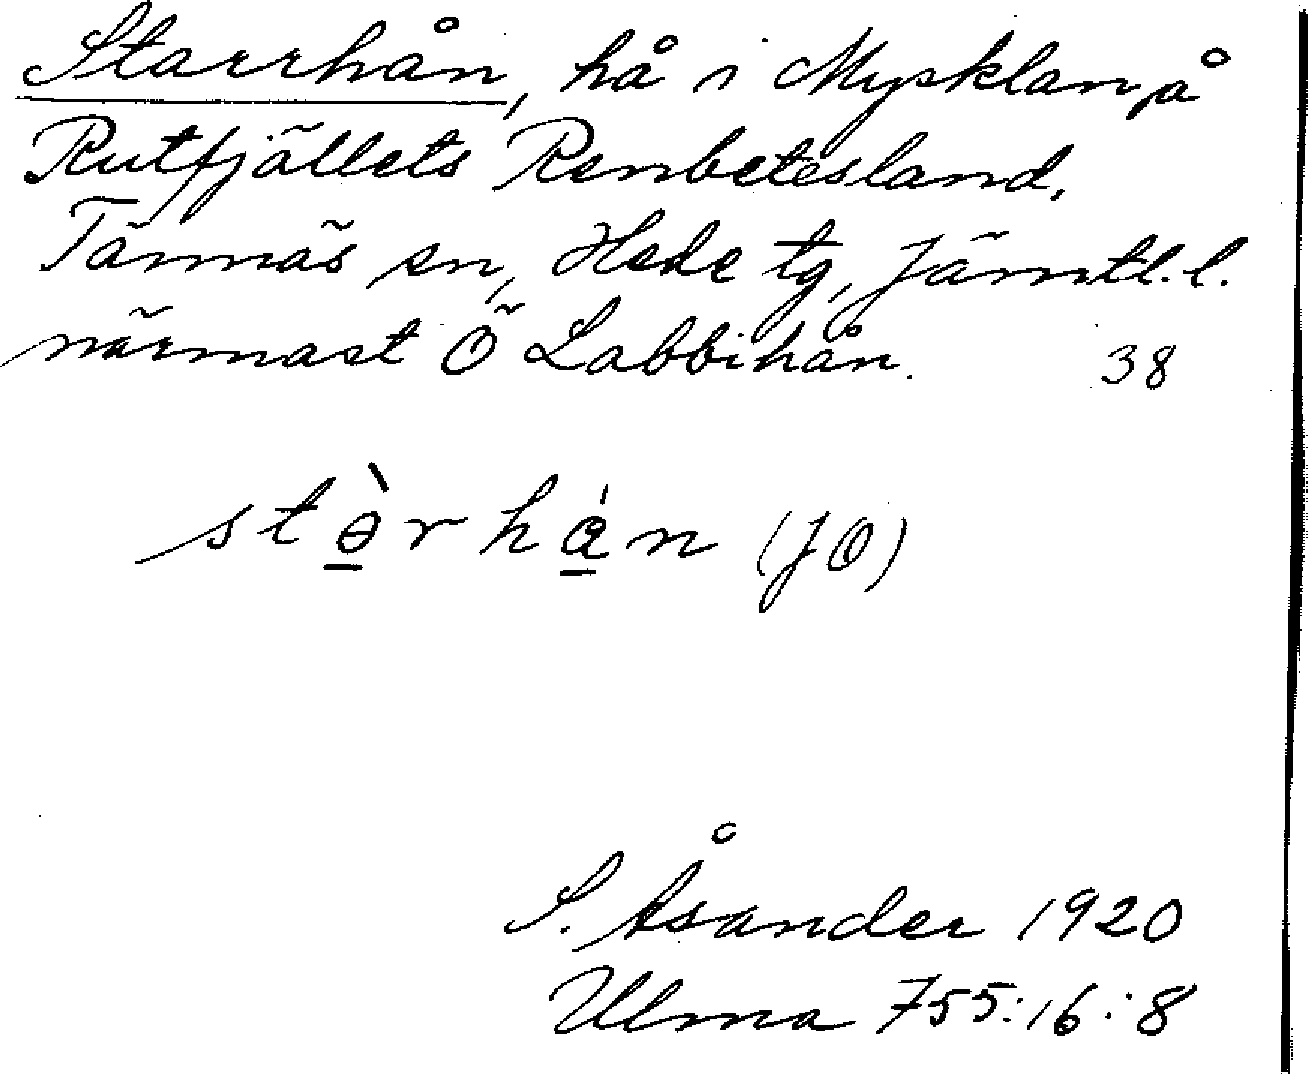 Starrhån, hå i Mysklan på
Rutfjällets Renbetesland,
Tännäs sn, Hede tg, Jämtl. l.
närmast Ö Labbihån. 38
stə̱̀rhá̱n (JÖ)
S. Åsander 1920
Ulma 755:16:8